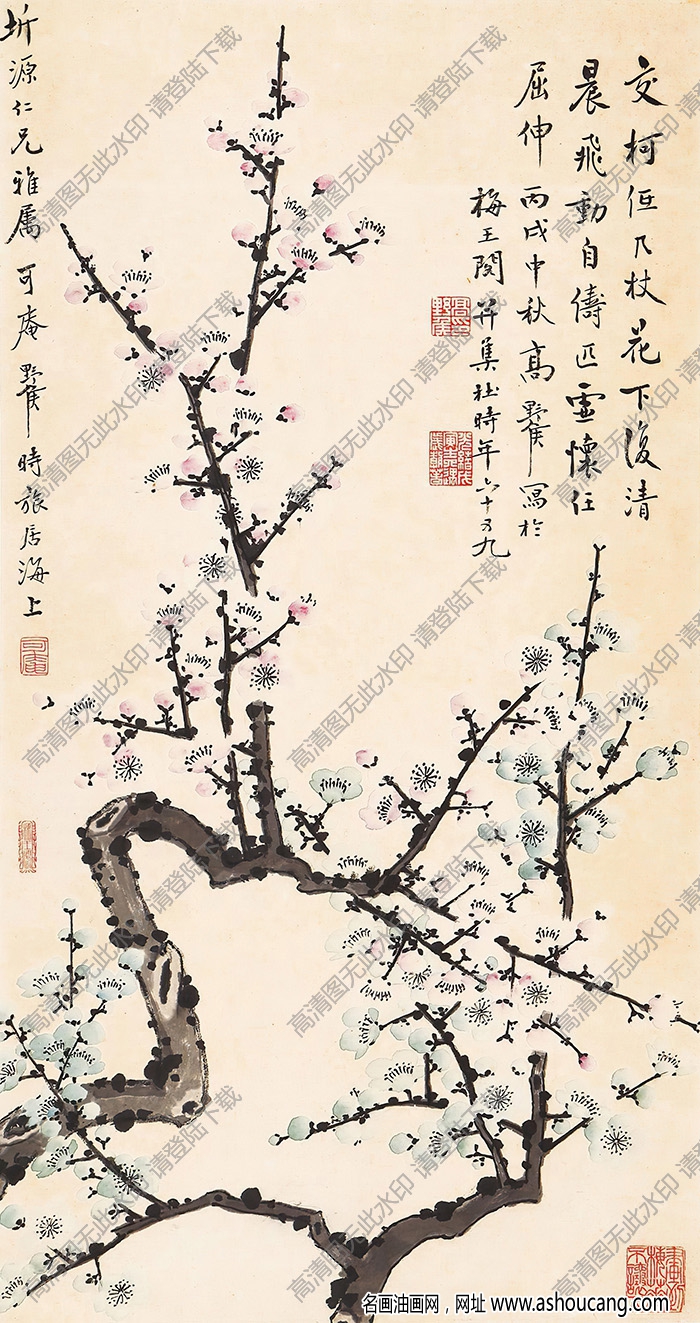 交柯低几杖花下復清
晨飛動自儔匹虛懷任
屈伸 丙戌中秋高野侯寫於
梅王閣并集杜時年六十又九
圻源仁兄雅属 可庵野侯時旅居海上
高清图无此水印 请登陆下载
名画油画网，网址 www.ashoucang.com